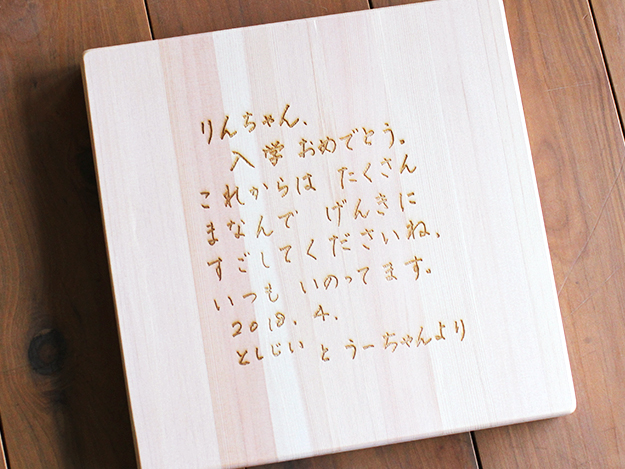 りんちゃん、
入学 おめでとう。
これからは たくさん
まなんで げんきに
すごしてくださいね、
いつも いのってます。
2018. 4.
としじい と うーちゃんより